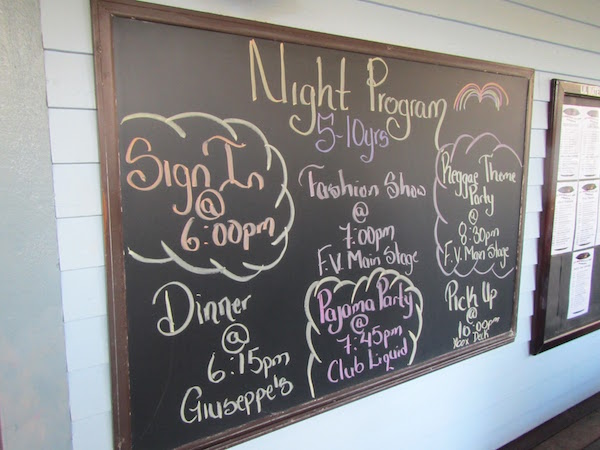 Night Program
5-10yrs
Sign In
@
6:00pm
Dinner
@
6:15pm
Giuseppe's
Fashion Show
@
7:00pm
F.V. Main Stage
Pajama Party
@
7:45pm
Club Liquid
Reggae Theme
Party
@
8:30pm
F.V. Main Stage
Pick Up
@
10:00pm
Xbox Deck